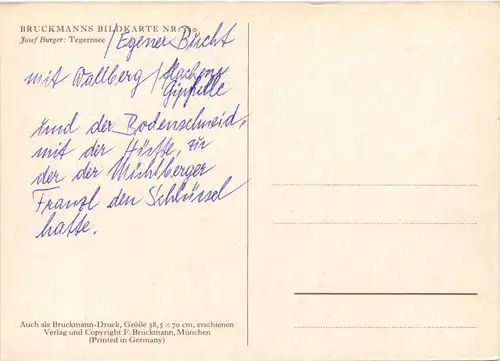 BRUCKMANNS BILDKARTE NR.
Josef Burger: Tegernsee / Egener Bucht
mit Wallberg / flachem
Gipfelle
und der Bodenschneid,
mit der Hütte, zu
der der Mühlberger
Franzl den Schlüssel
hatte.
Auch als Bruckmann-Druck, Größe 58,5 × 70 cm, erschienen
Verlag und Copyright F. Bruckmann, München
(Printed in Germany)